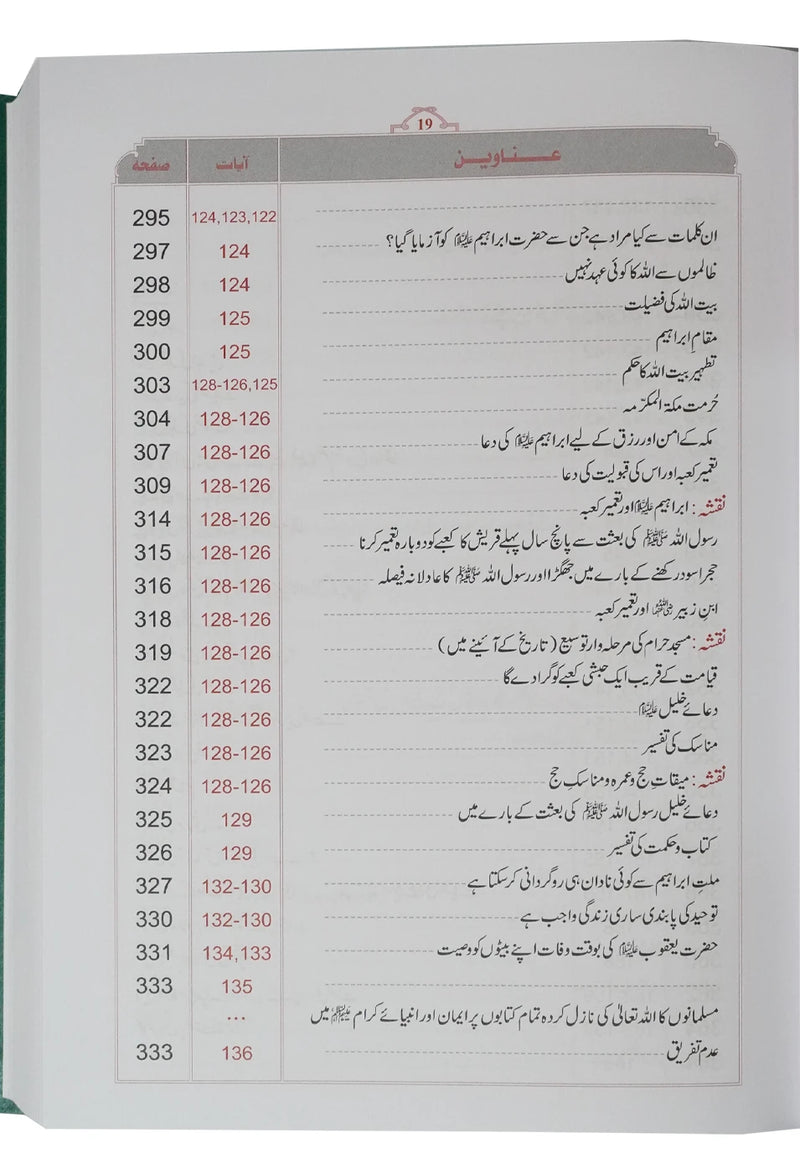 19
عناوین آیات صفحہ
124,123,122 295
ان کلمات سے کیا مراد ہے جن سے حضرت ابراہیم علیہ السلام کو آزمایا گیا؟ 124 297
ظالموں سے اللہ کا کوئی عہد نہیں 124 298
بیت اللہ کی فضیلت 125 299
مقامِ ابراہیم 125 300
تطہیر بیت اللہ کا حکم 128-126,125 303
حُرمت مکۃ المکرّمہ 128-126 304
مکہ کے امن اور رزق کے لیے ابراہیم علیہ السلام کی دعا 128-126 307
تعمیر کعبہ اور اس کی قبولیت کی دعا 128-126 309
نقشہ: ابراہیم علیہ السلام اور تعمیر کعبہ 128-126 314
رسول اللہ ﷺ کی بعثت سے پانچ سال پہلے قریش کا کعبے کو دوبارہ تعمیر کرنا 128-126 315
حجر اسود رکھنے کے بارے میں جھگڑا اور رسول اللہ ﷺ کا عادلانہ فیصلہ 128-126 316
ابنِ زبیر رضی اللہ عنہما اور تعمیر کعبہ 128-126 318
نقشہ: مسجد حرام کی مرحلہ وار توسیع (تاریخ کے آئینے میں) 128-126 319
قیامت کے قریب ایک حبشی کعبے کو گرا دے گا 128-126 322
دعائے خلیل علیہ السلام 128-126 322
مناسک کی تفسیر 128-126 323
نقشہ: میقاتِ حج و عمرہ و مناسکِ حج 128-126 324
دعائے خلیل رسول اللہ ﷺ کی بعثت کے بارے میں 129 325
کتاب و حکمت کی تفسیر 129 326
ملتِ ابراہیم سے کوئی نادان ہی روگردانی کر سکتا ہے 132-130 327
توحید کی پابندی ساری زندگی واجب ہے 132-130 330
حضرت یعقوب علیہ السلام کی بوقت وفات اپنے بیٹوں کو وصیت 134,133 331
135 333
مسلمانوں کا اللہ تعالیٰ کی نازل کردہ تمام کتابوں پر ایمان اور انبیائے کرام علیہم السلام میں ...
عدم تفریق 136 333